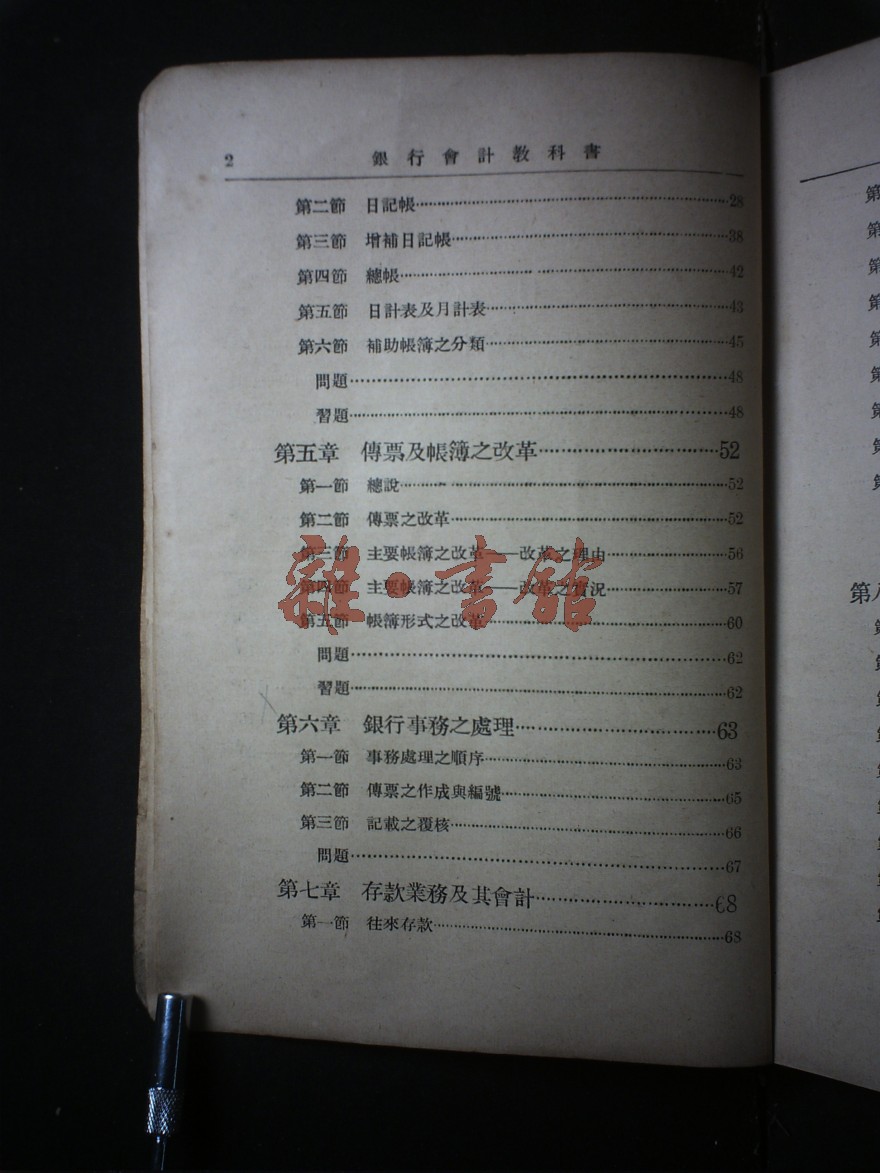 2 銀行會計教科書
第二節 日記帳……28
第三節 增補日記帳……38
第四節 總帳……42
第五節 日計表及月計表……43
第六節 補助帳簿之分類……45
問題……48
習題……48
第五章 傳票及帳簿之改革……52
第一節 總說……52
第二節 傳票之改革……52
第三節 主要帳簿之改革——改革之理由……56
第四節 主要帳簿之改革——改革之實況……57
第五節 帳簿形式之改革……60
問題……62
習題……62
第六章 銀行事務之處理……63
第一節 事務處理之順序……63
第二節 傳票之作成與編號……65
第三節 記載之覆核……66
問題……67
第七章 存款業務及其會計……68
第一節 往來存款……68
雜·書館
第
第
第
第
第
第
第
第
第
第八
第
第
第
第
第